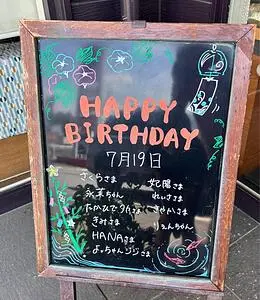 HAPPY
BIRTHDAY
7月19日
さくらさま
永茉ちゃん
たかひでさま
きみさま
HANAさま
よっちゃんパパさま
妃陽さま
れいさま
さやかさま
りょんちゃん